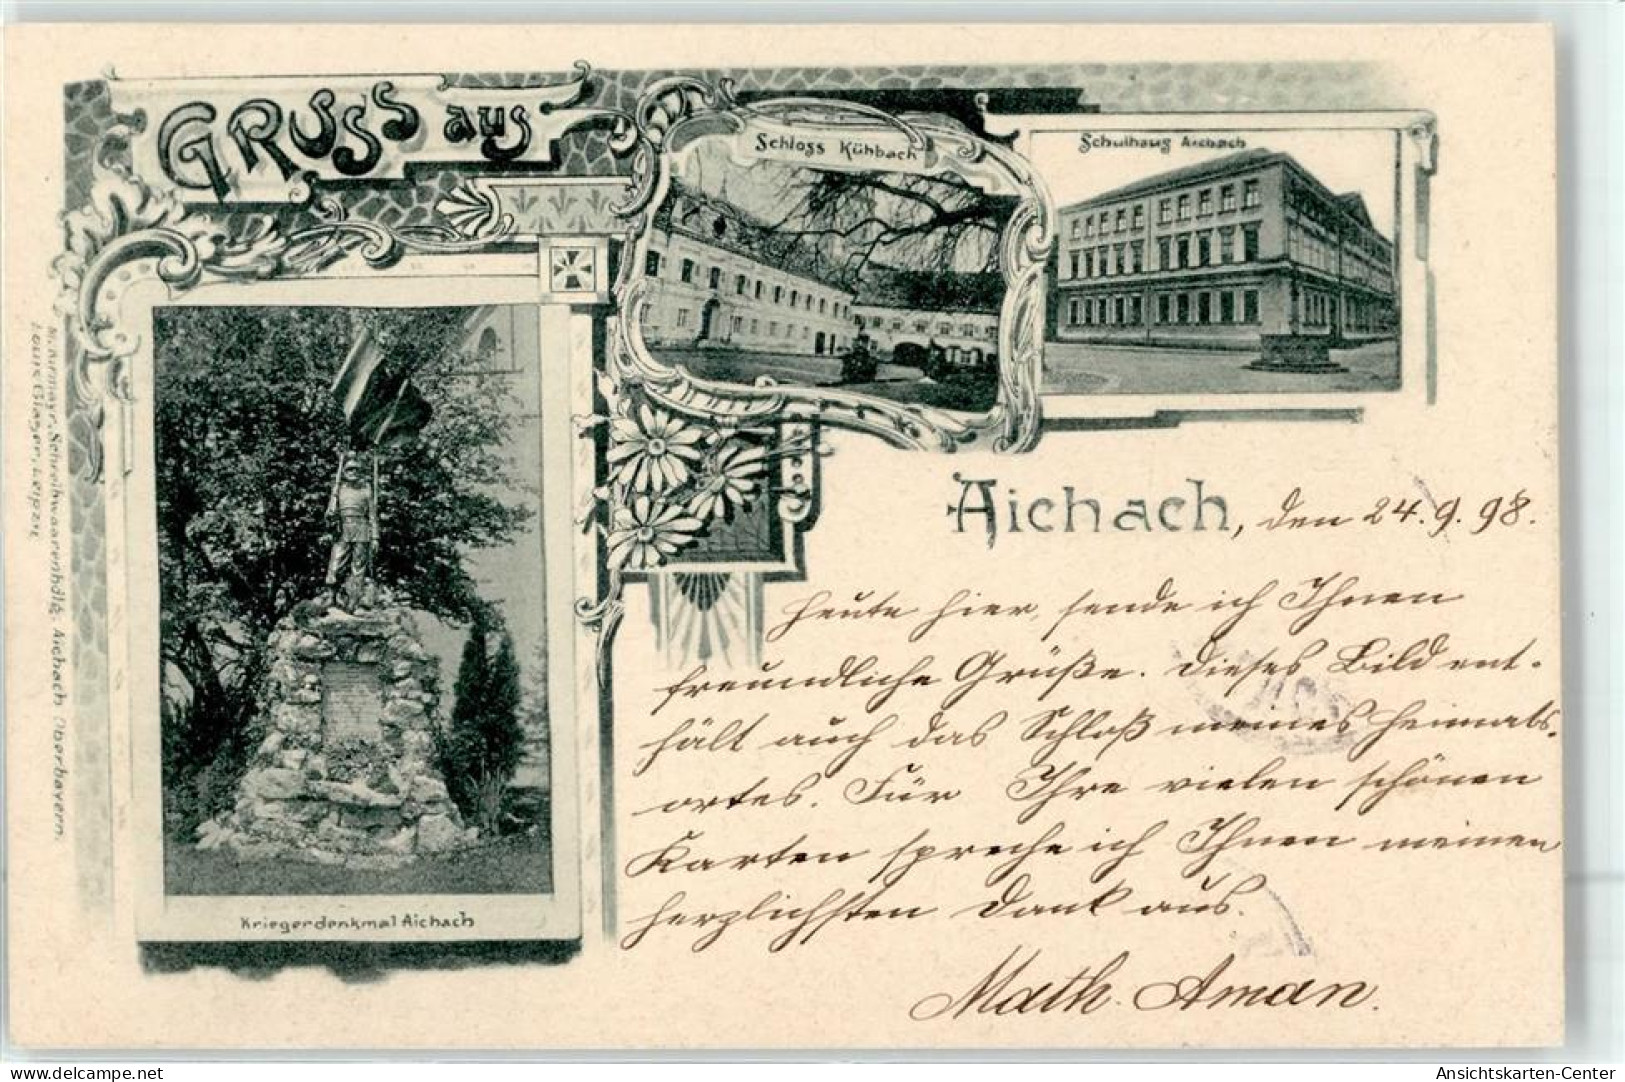 GRUSS aus
Schloss Kühbach
Schulhaus Aichach
Aichach, den 24.9.98.
Heute hier, sende ich Ihnen
freundliche Grüße. Dieses Bild ent-
hält auch das Schloß meines Heimats-
ortes. Für Ihre vielen schönen
Karten spreche ich Ihnen meinen
herzlichsten Dank aus.
Math. Aman.
Kriegerdenkmal Aichach
Schreibwaarenhdlg. Aichach Oberbayern.
Louis Glaser, Leipzig.
www.delcampe.net
mcm.md
Ansichtskarten-Center